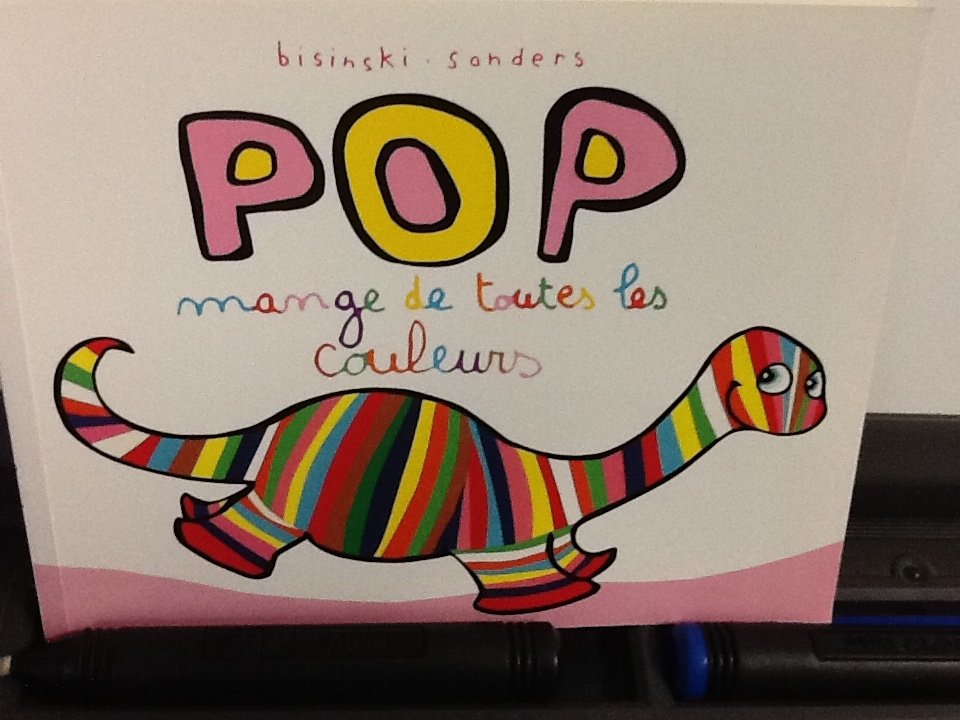 bisinski . sanders
POP
mange de toutes les
couleurs